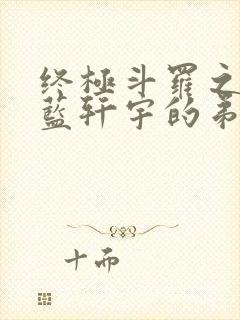 终極斗羅之
藍轩宇的弟
十而